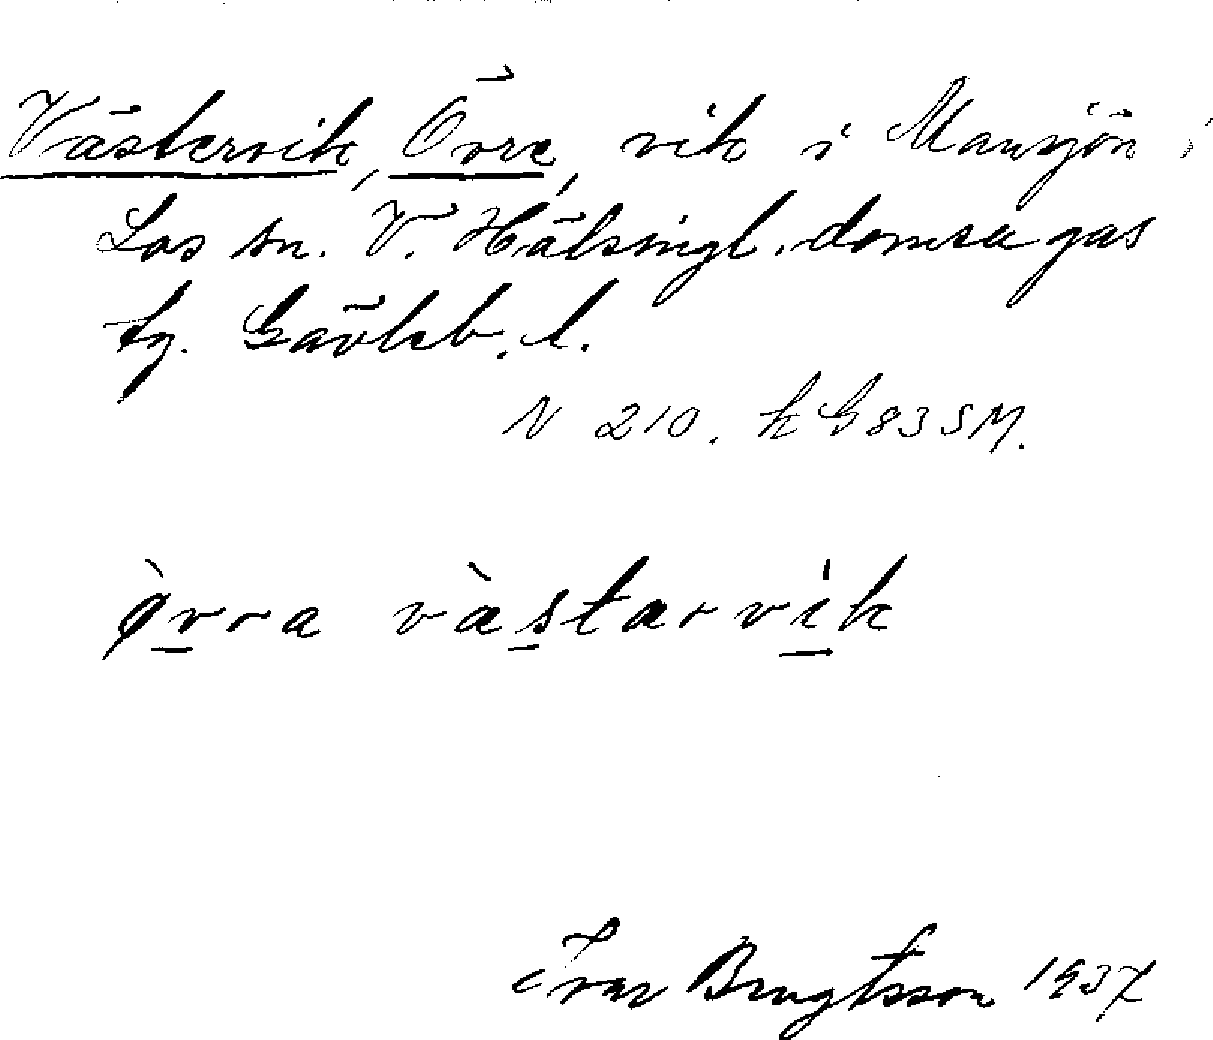 Västervik, Övre, vik i Mansjön i
Los sn. V. Hälsingl. domsagas
tg. Gävleb. l.
N 210. k G 83 SM.
øvra västarvik
Ivar Bengtsson 1937